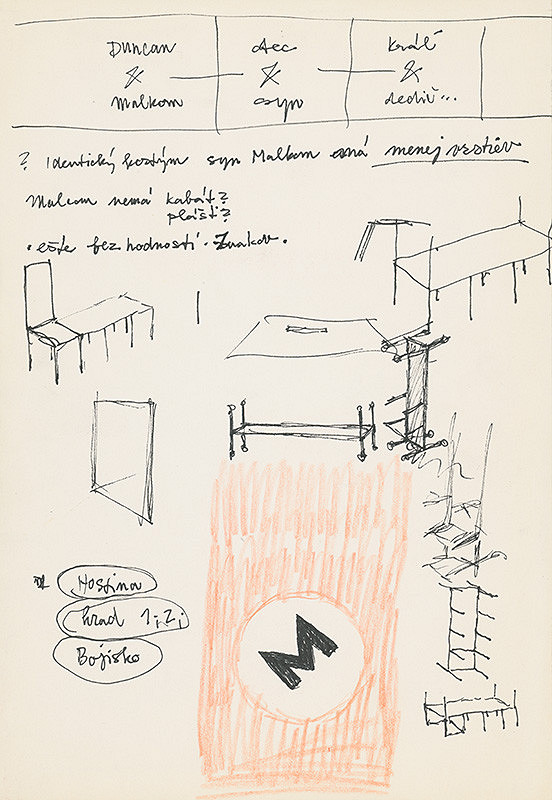 Duncan otec kráľ
& & &
Malkom syn dedič...
? Identický kostým syn Malkom má menej vrstiev
Malcom nemá kabát?
plášť?
• ešte bez hodností - Znakov.
Hostina
hrad 1; 2;
Bojisko
M